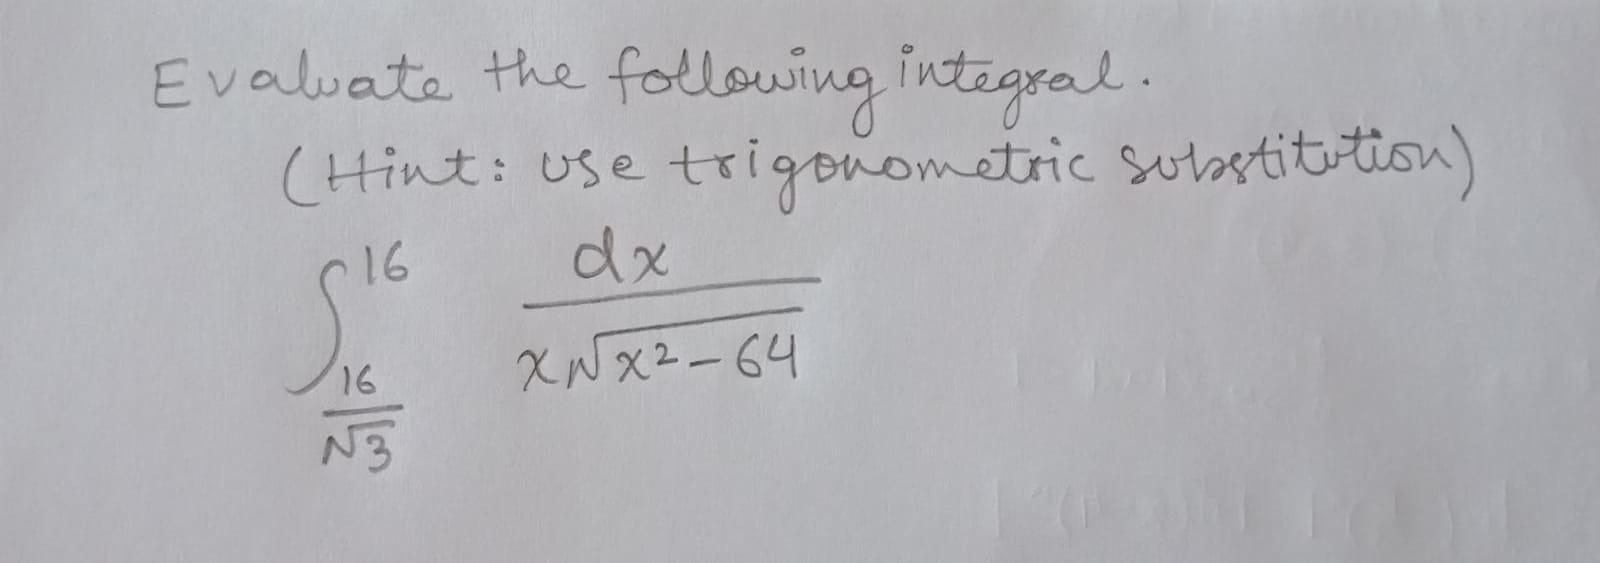 Evaluate the following integral.
(Hint: use trigonometric substitution)
∫_{16/√3}^{16} dx / (x√(x² - 64))